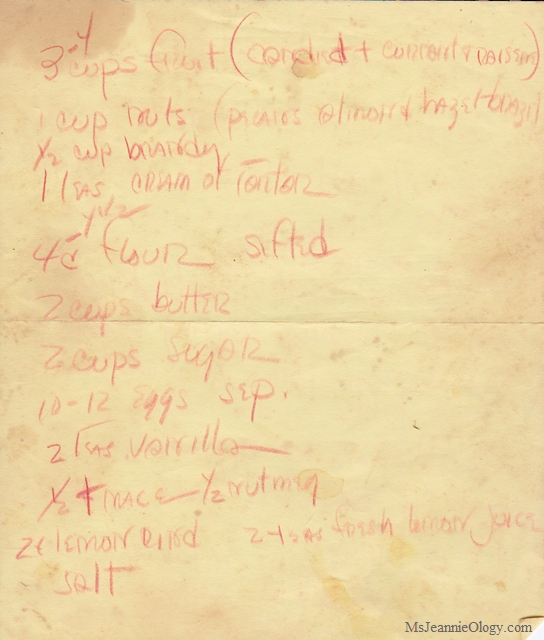 3-4 cups fruit (candied + currants & raisens)
1 cup nuts (pecans almond & hazel-brazil)
1/2 cup brandy
1 teas cream of tartar
4-4 1/2 c flour sifted
2 cups butter
2 cups sugar
10-12 eggs sep.
2 teas. vanilla
1/2 t mace - 1/2 nutmeg
2t lemon rind 2-teas fresh lemon juice
salt
MsJeannieOlogy.com